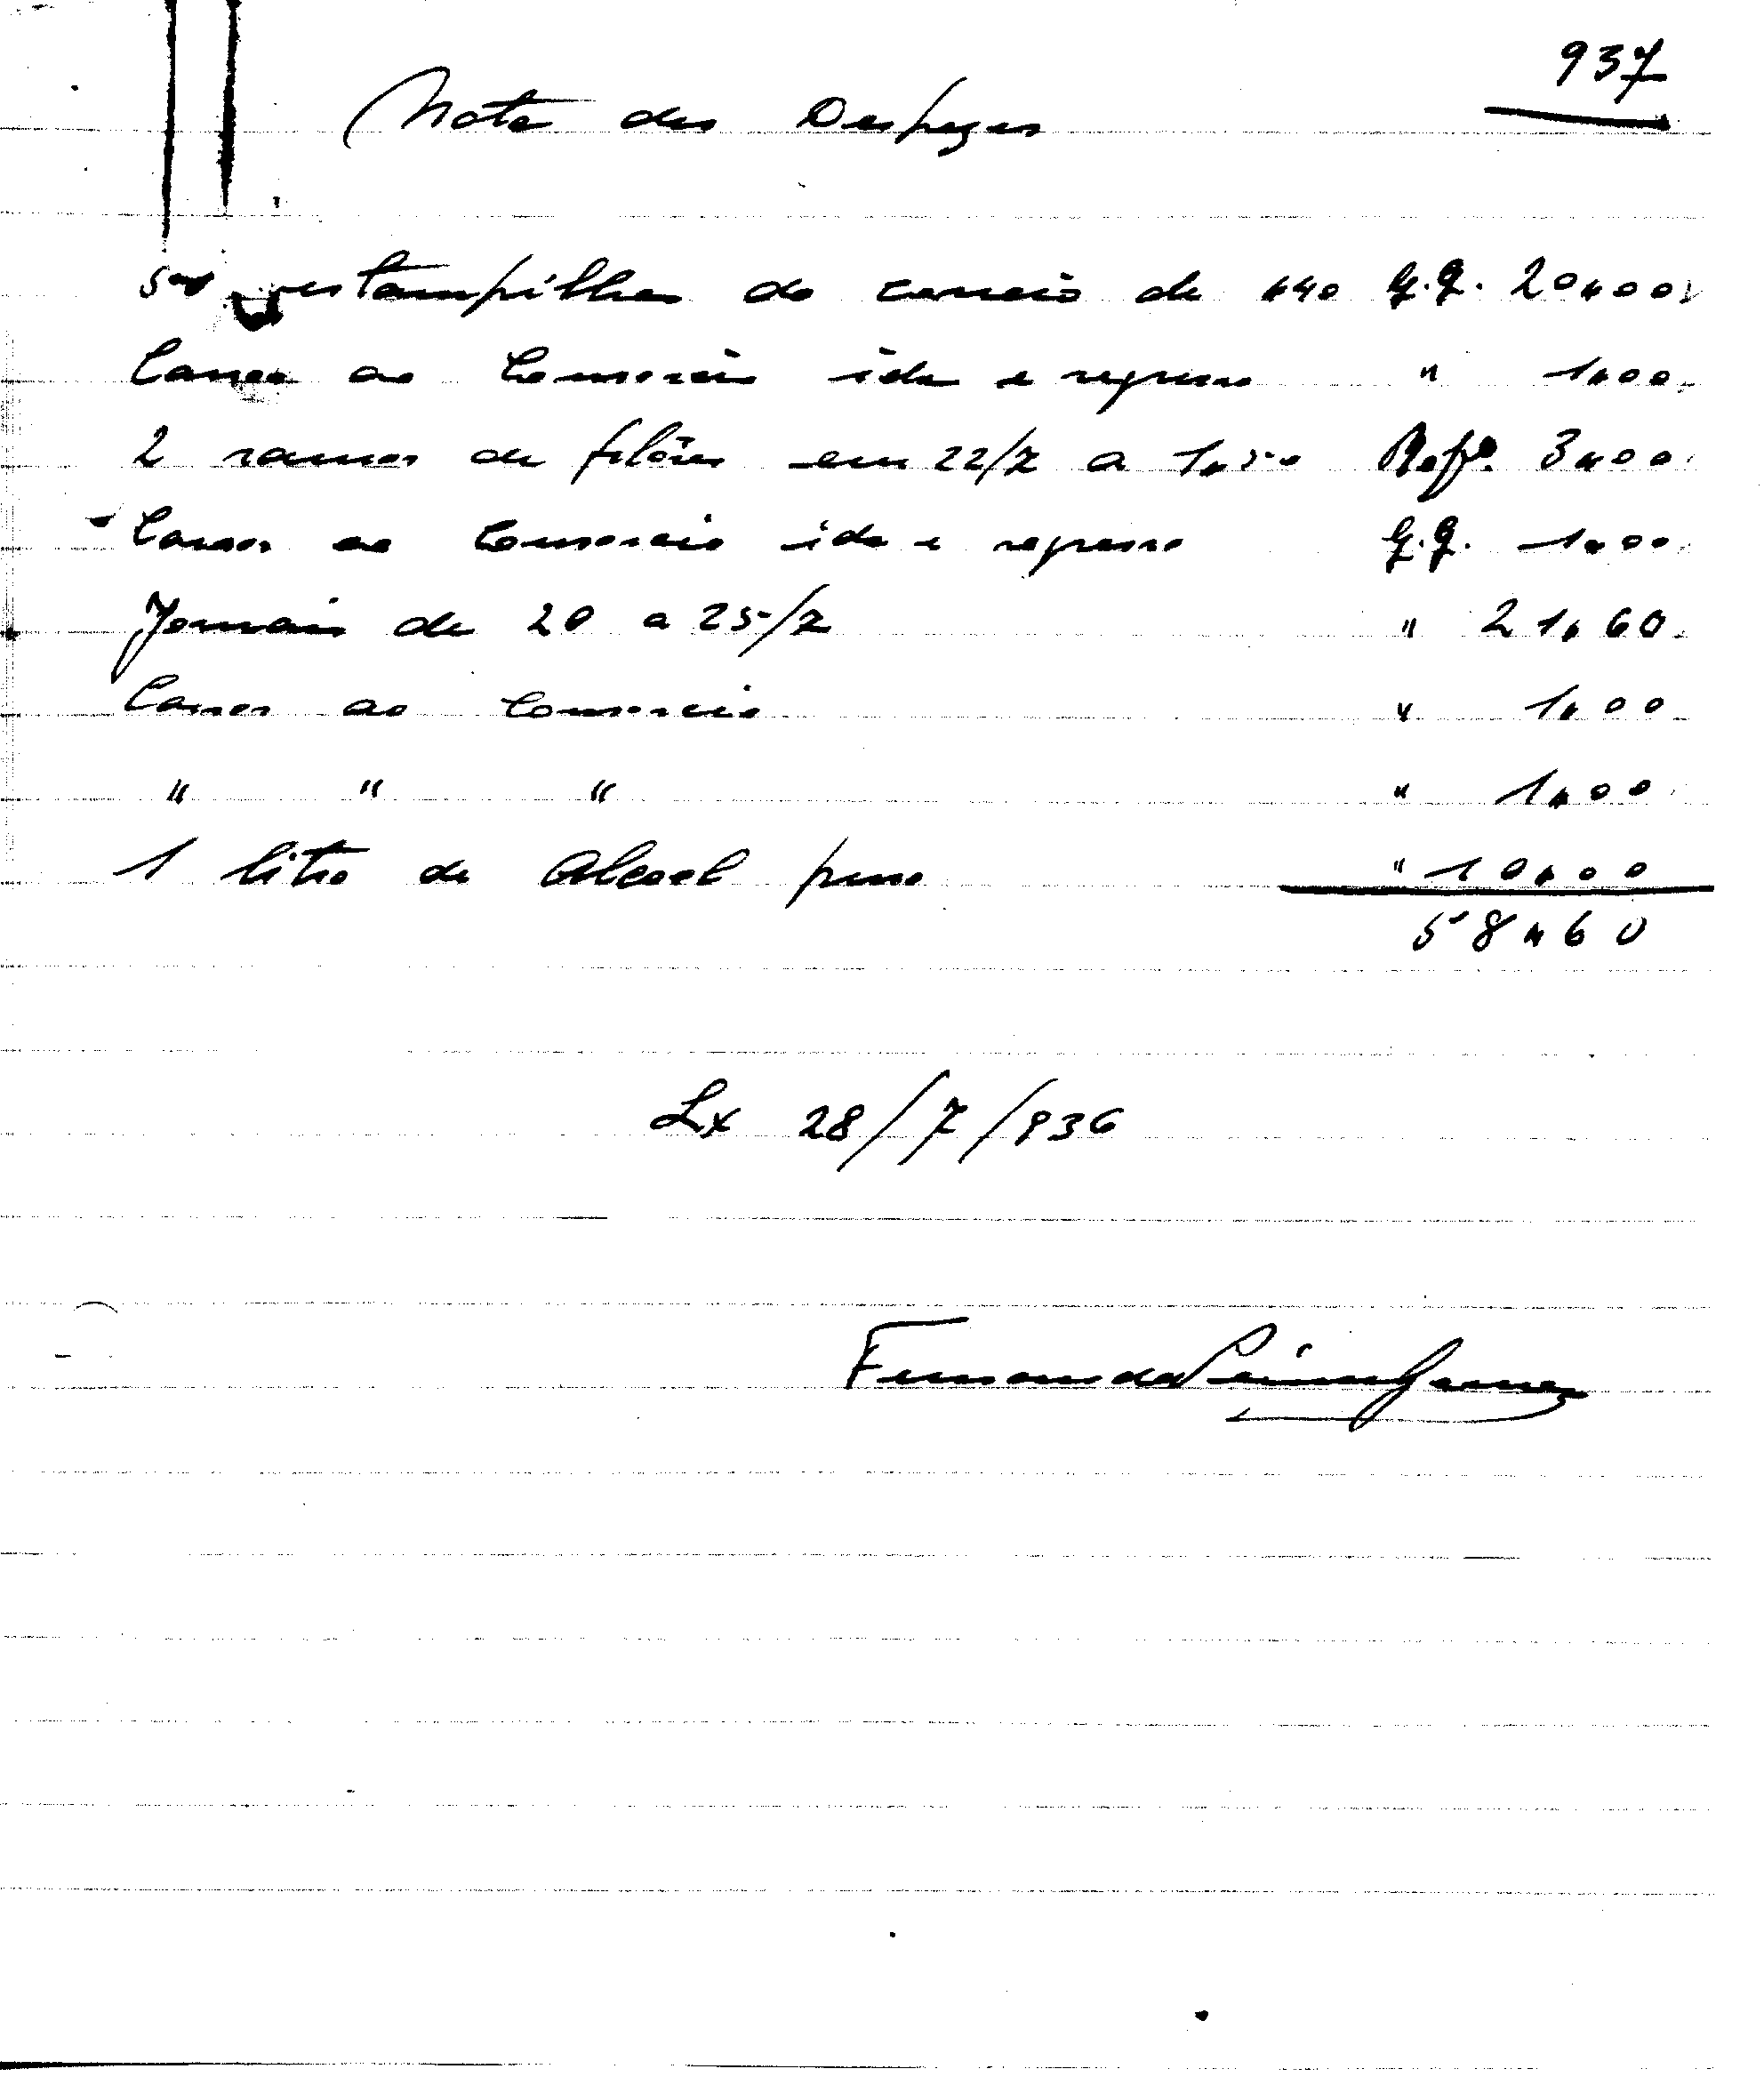 937
Nota das Despezas
50 estampilhas do correio de $40 G.G. 20$00
Carros ao Comercio ida e regresso " 1$00
2 ramos de flôres em 22/7 a 1$50 Repº. 3$00
Carros ao Comercio ida e regresso G.G. 1$00
Jornais de 20 a 25/7 " 21$60
Carros ao Comercio " 1$00
" " " " 1$00
1 litro de Alcool puro " 10$00
58$60
Lx 28/7/936
Fernando